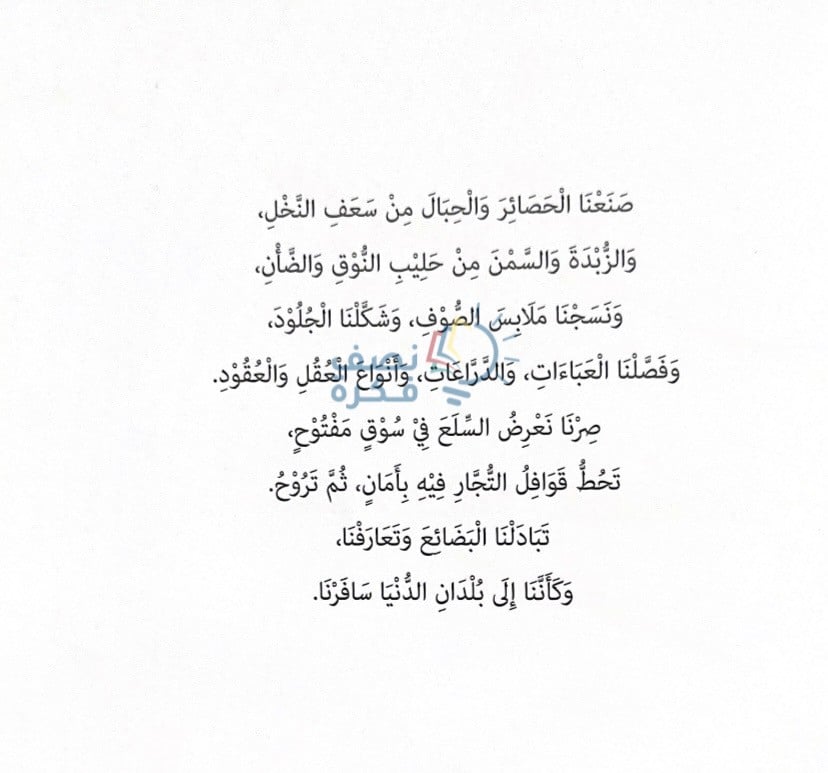 صَنَعْنَا الْحَصَائِرَ وَالْحِبَالَ مِنْ سَعَفِ النَّخْلِ،
وَالزُّبْدَةَ وَالسَّمْنَ مِنْ حَلِيْبِ النُّوْقِ وَالضَّأْنِ،
وَنَسَجْنَا مَلَابِسَ الصُّوْفِ، وَشَكَّلْنَا الْجُلُوْدَ،
نصف
وَفَصَّلْنَا الْعَبَاءَاتِ، وَالدَّرَّاعَاتِ، وَأَنْوَاعَ الْعُقُلِ وَالْعُقُوْدِ.
فكرة
صِرْنَا نَعْرِضُ السِّلَعَ فِيْ سُوْقٍ مَفْتُوْحٍ،
تَحُطُّ قَوَافِلُ التُّجَّارِ فِيْهِ بِأَمَانٍ، ثُمَّ تَرُوْحُ.
تَبَادَلْنَا الْبَضَائِعَ وَتَعَارَفْنَا،
وَكَأَنَّنَا إِلَى بُلْدَانِ الدُّنْيَا سَافَرْنَا.